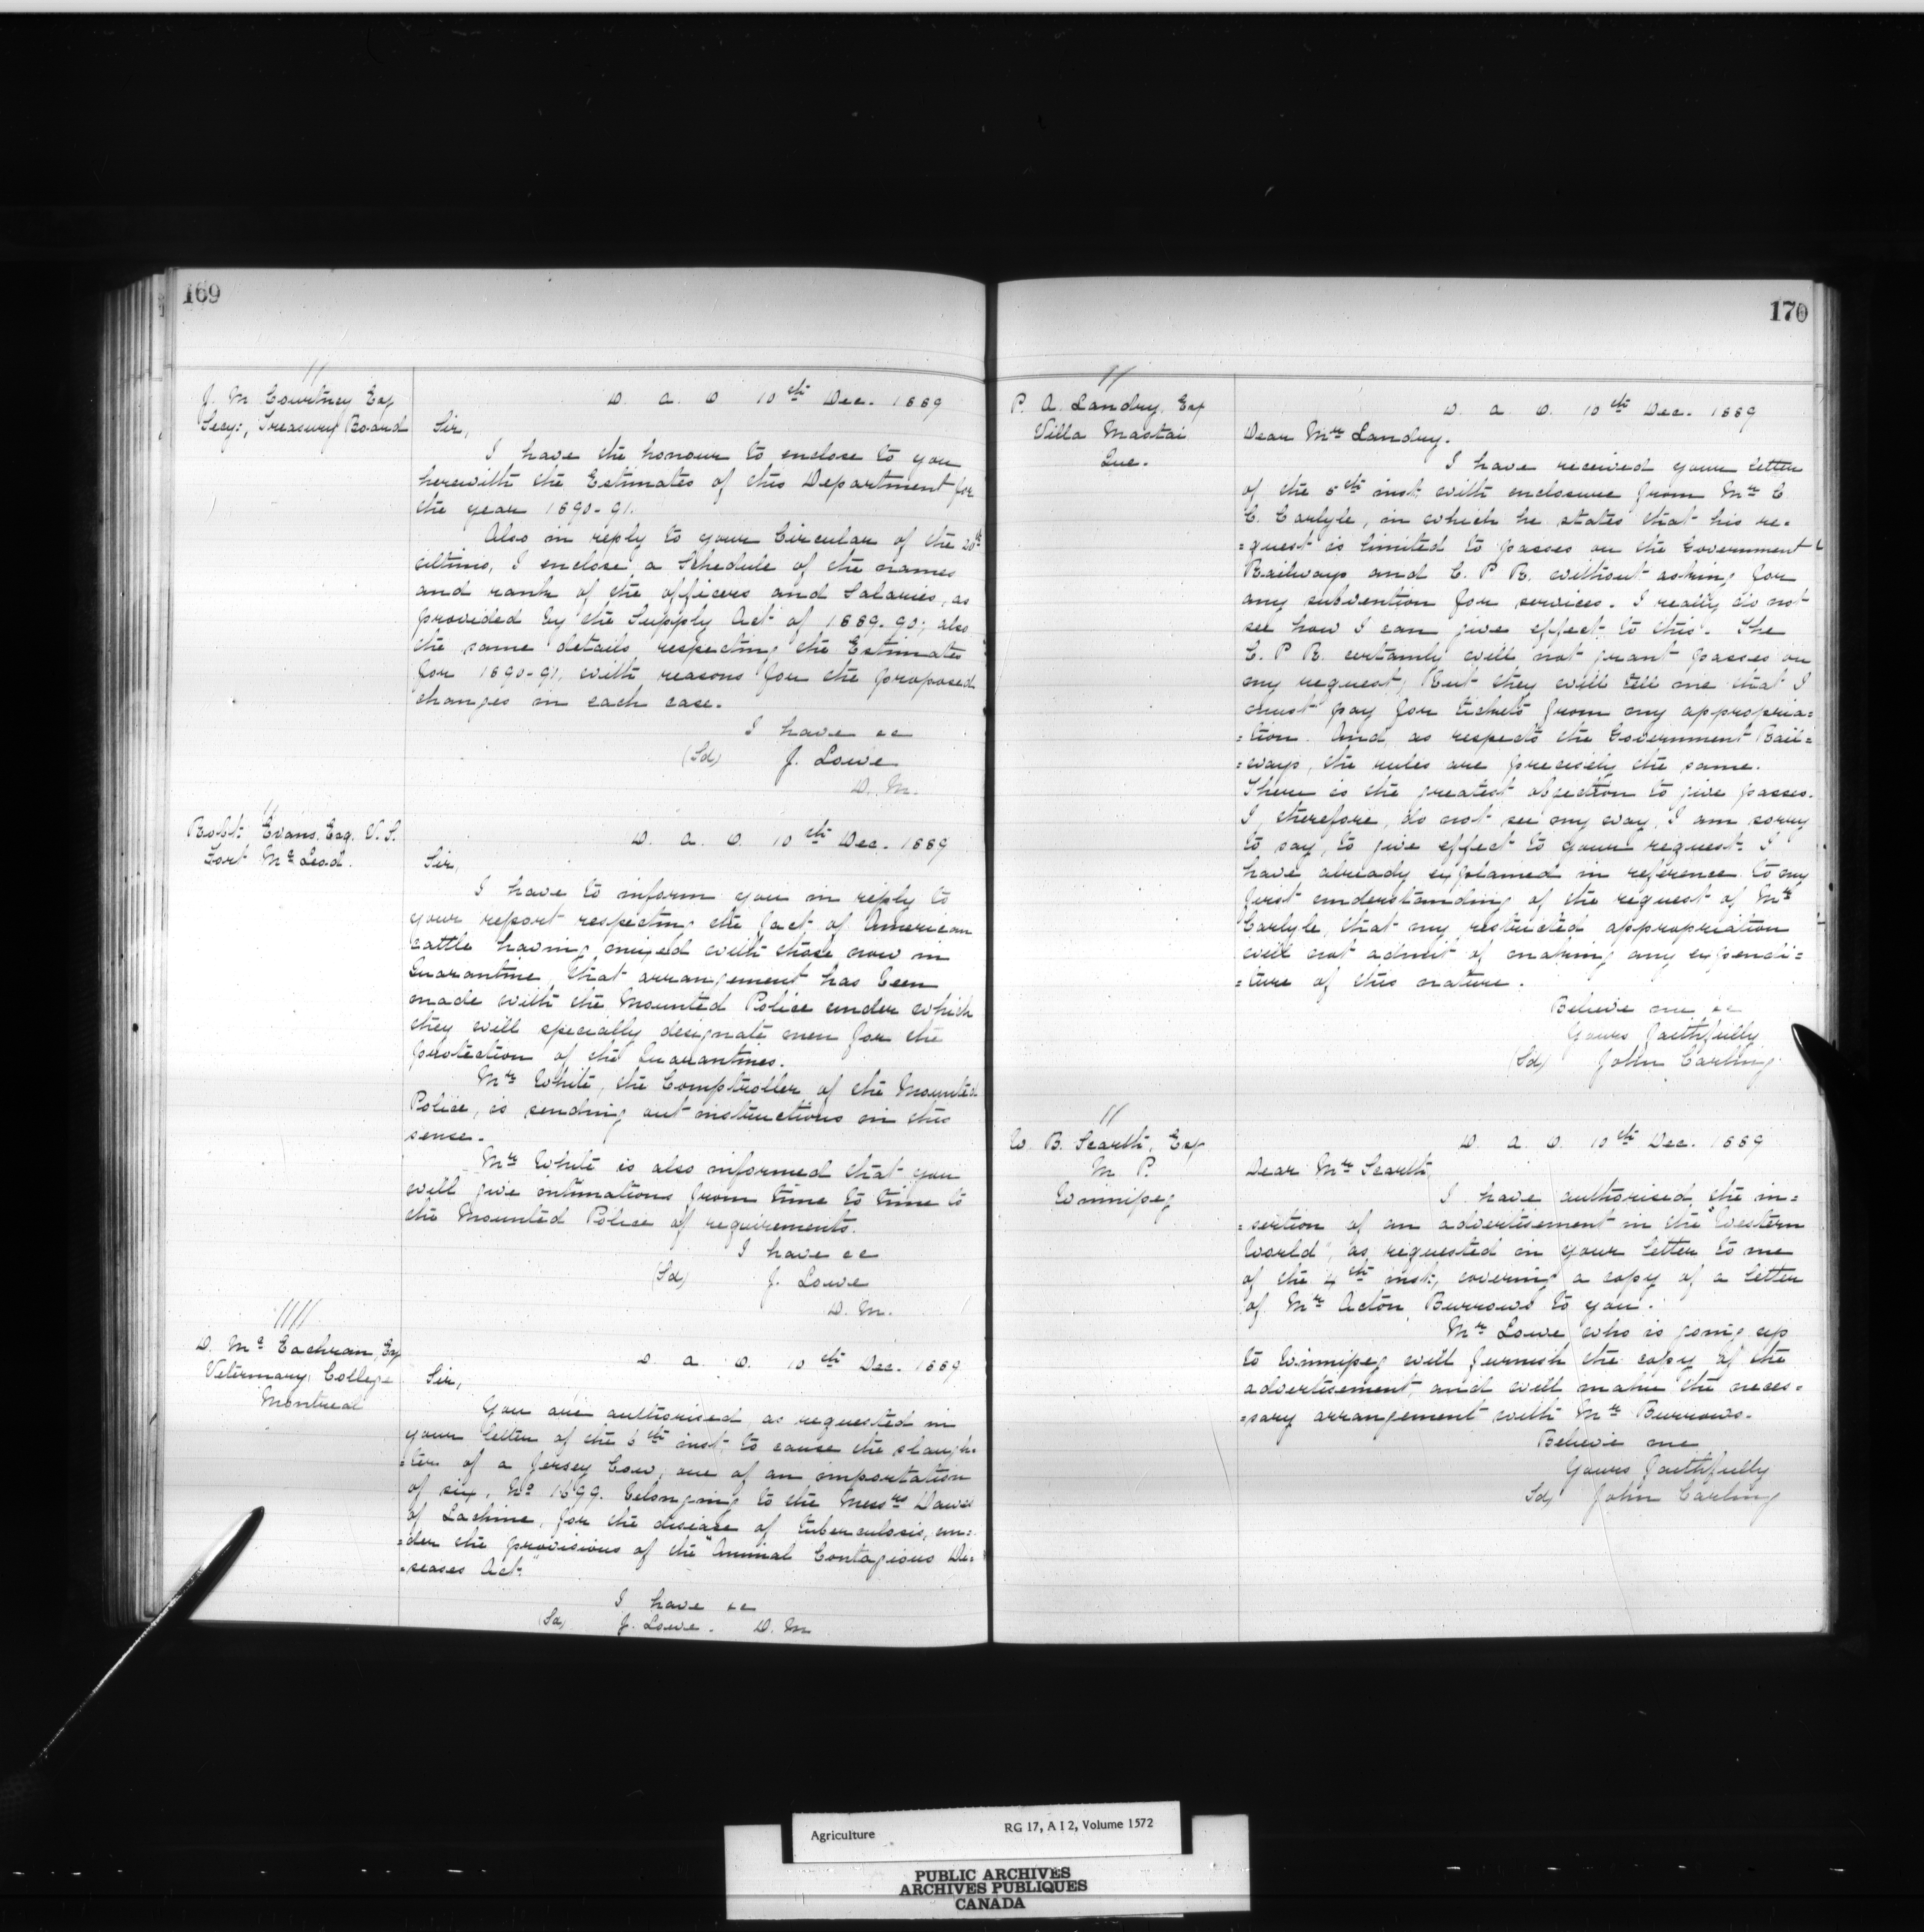 169
//
J. M. Courtney Esq
Secy:, Treasury Board
D. a. O. 10th Dec. 1889
Sir,
I have the honour to enclose to you
herewith the Estimates of this Department for
the year 1890-91.
Also in reply to your Circular of the 20th
ultimo, I enclose a Schedule of the names
and rank of the officers and Salaries, as
provided by the Supply Act of 1889-90; also
the same details, respecting the Estimates
for 1890-91, with reasons for the proposed
changes in each case.
I have &c
(Sd) J. Lowe
D. M.
//
Robt. Evans, Esq. V. S.
Fort McLeod.
D. a. O. 10th Dec. 1889
Sir,
I have to inform you in reply to
your report respecting the fact of American
cattle having mixed with those now in
Quarantine, that arrangement has been
made with the Mounted Police under which
they will specially designate men for the
protection of the Quarantines.
Mr White, the Comptroller of the Mounted
Police, is sending out instructions in this
sense.
Mr White is also informed that you
will give intimations from time to time to
the Mounted Police of requirements.
I have &c
(Sd) J. Lowe
D. M.
////
D. McEachran, Esq
Veterinary College
Montreal
D. a. O. 10th Dec. 1889
Sir,
You are authorised, as requested in
your letter of the 6th inst, to cause the slaugh-
=ter of a Jersey Cow, one of an importation
of six, No 1699. belonging to the Messrs Dawes
of Lachine, for the disease of tuberculosis, un=
=der the provisions of the "Animal Contagious Di=
=seases Act."
I have &c
(Sd) J. Lowe. D. M
170
//
P. A. Landry, Esq
Villa Mastai
Que.
D. a. O. 10th Dec. 1889
Dear Mr Landry.
I have received your letter
of the 5th inst, with enclosure from Mr C.
C. Carlyle, in which he states that his re=
=quest is limited to passes on the Government
Railways and C. P. R. without asking for
any subvention for services. I really do not
see how I can give effect to this. The
C. P. R. certainly will not grant passes on
my request, But they will tell me that I
must pay for tickets from my appropria=
=tion. And, as respects the Government Rail=
=ways, the rules are precisely the same.
There is the greatest objection to give passes.
I, therefore, do not see my way, I am sorry
to say, to give effect to your request. I
have already explained in reference to my
first understanding of the request of Mr
Carlyle, that my restricted appropriation
will not admit of making any expendi=
=ture of this nature.
Believe me &c
Yours faithfully
(Sd) John Carling.
//
W. B. Scarth, Esq
M. P.
Winnipeg
D. a. O. 10th Dec. 1889
Dear Mr Scarth,
I have authorised the in=
=sertion of an advertisement in the "Western
World", as requested in your letter to me
of the 4th inst, covering a copy of a letter
of Mr Acton Burrows to you.
Mr Lowe who is going up
to Winnipeg will furnish the copy of the
advertisement and will make the neces=
=sary arrangement with Mr Burrows.
Believe me
Yours faithfully
Sd) John Carling
Agriculture RG 17, A I 2, Volume 1572
PUBLIC ARCHIVES
ARCHIVES PUBLIQUES
CANADA